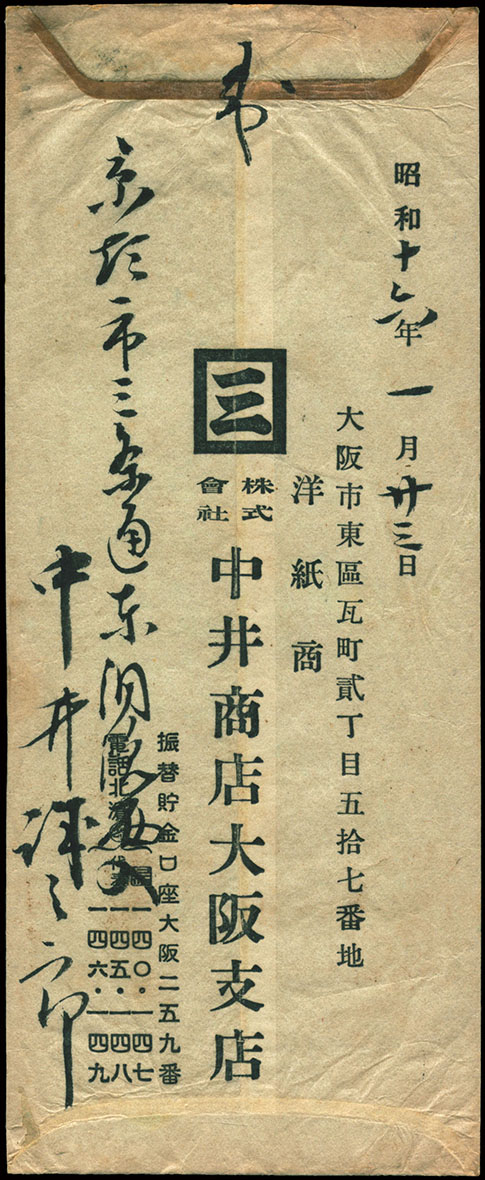 昭和十六年一月廿三日
大阪市東區瓦町貳丁目五拾七番地
洋紙商
三
株式
會社
中井商店大阪支店
振替貯金口座大阪二五九番
一四〇・一四七
電話北浜
一四五・一四八
一四六・一四九
京都市三条通東洞院西入
中井